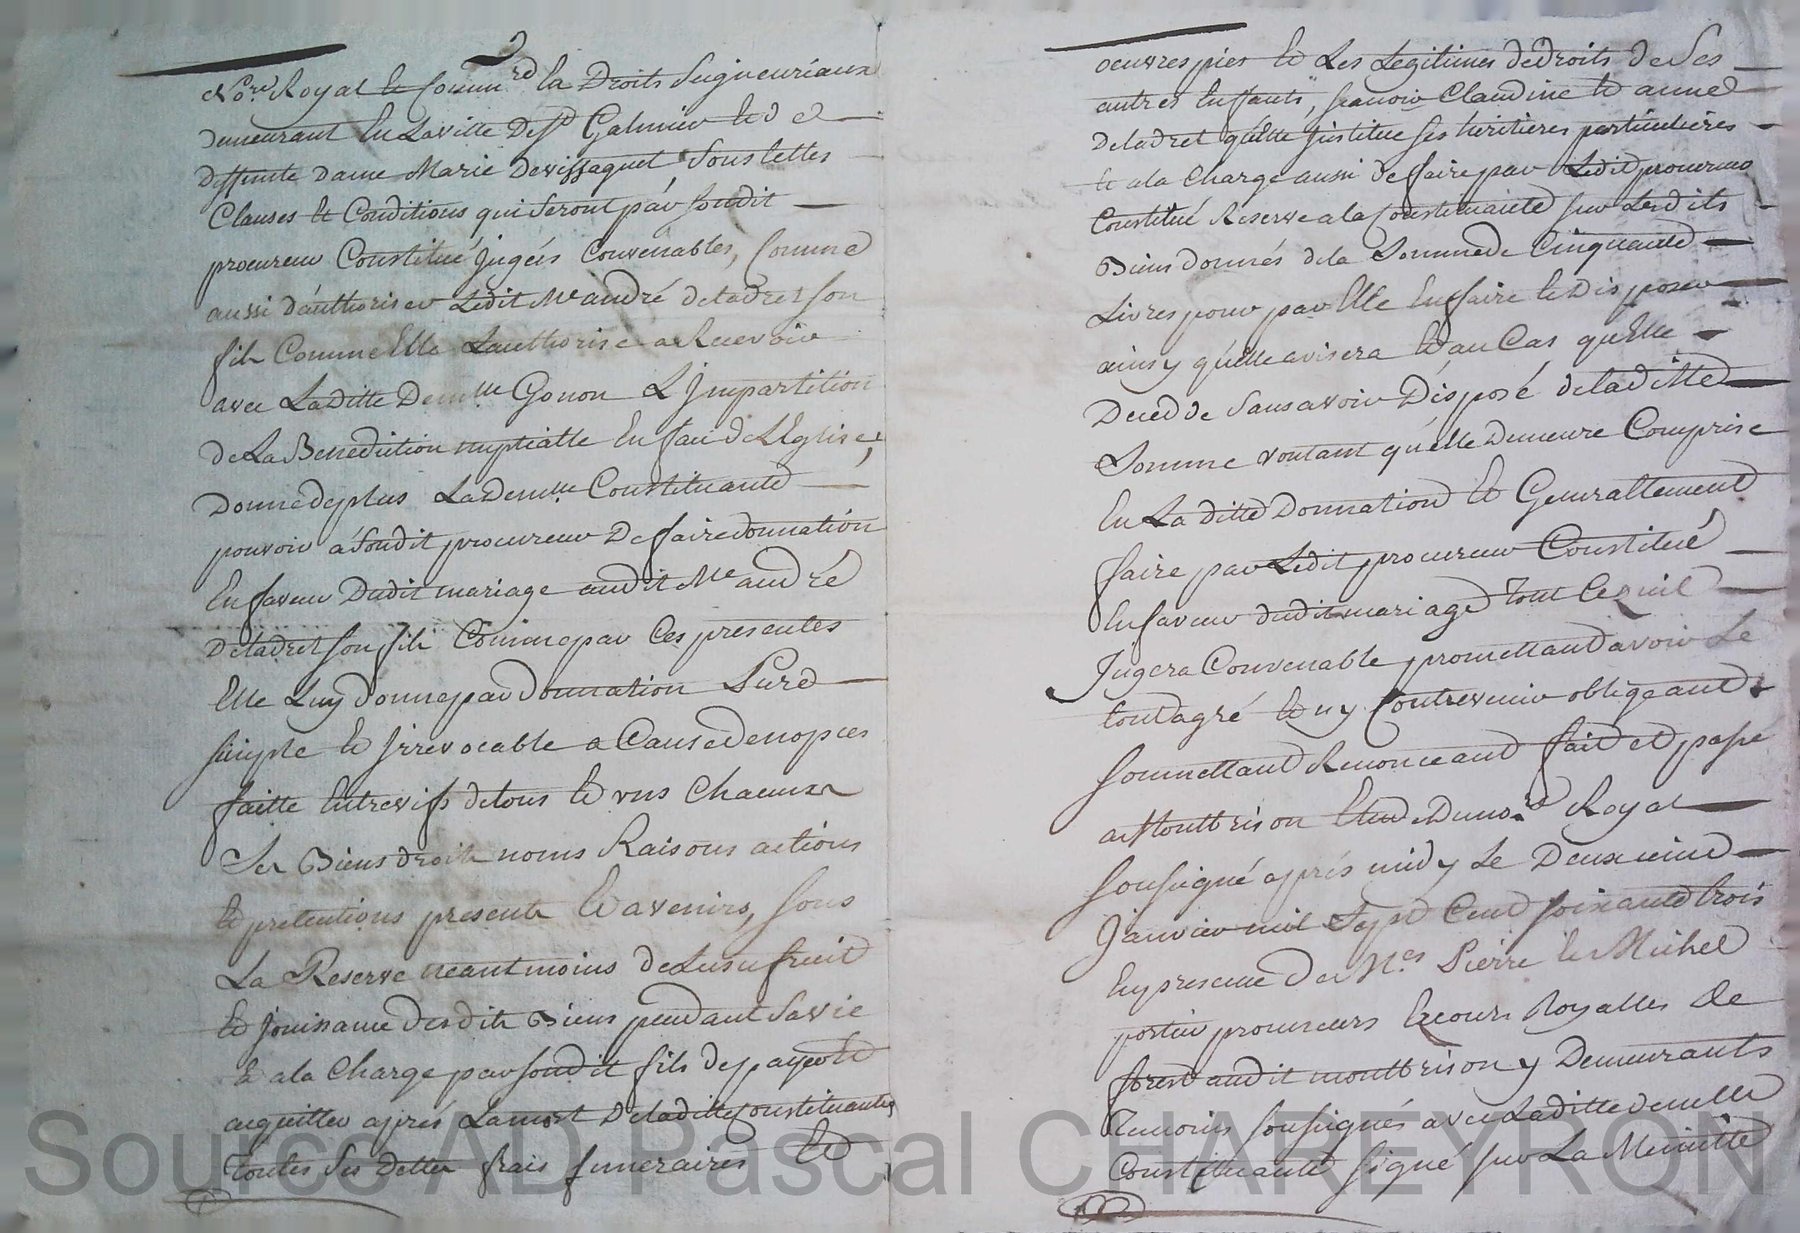 Nore Royal et Comm.rd En Droits Seigneuriaux
demeurant En Laville De St Galmier Et d
deffunte dame Marie devissaguet Sous telles
Clauses et Conditions qui Seront pár Sondit
procureur Constitué jugées Convenables, Comme
aussi d'authoriser Ledit Me andré deladret son
fils Comme Elle Lauthorise a Recevoir
avec Laditte Demlle Gonon L'Impartition
de La Benediction nuptialle En face de L'Eglise,
Donne de plus LaDemlle Constituante
pouvoir á Sondit procureur De faire donnation
En faveur Dudit mariage audit Me andré
Deladret son fils Comme par Ces presentes
Elle Luy donne par donnation Pure
simple et Irrevocable a Cause de nopces
faitte Entrevifs de tous et uns Chacuns
Ses Biens droits noms Raisons actions
et pretentions presents et avenirs, sous
La Reserve neantmoins de Lusufruit
et Jouissance desdits Biens pendant Sa vie
et a la Charge par sondit fils de payer et
acquitter aprés Lamort De laditte Constituante
toutes Ses Dettes frais funeraires et
oeuvres pies et Les Legitimes de droits de Ses
autres Enfants, scavoir Claudine et anne
Deladret qu'Elle Institue Ses heritieres particulieres
et a la Charge aussi de faire par Ledit procureur
Constitué Reserve a la Constituante sur Lesdits
Biens donnés de la Somme de Cinquante
Livres pour par Elle En faire et Disposer
ainsy qu'elle avisera et au Cas qu'Elle
Decedde Sans avoir Disposé de laditte
Somme voulant qu'elle Demeure Comprise
En La ditte Donnation et Generallement
faire par Ledit procureur Constitué
En faveur dudit mariage tout Ce quil
Jugera Convenable promettant avoir Le
tout agré et ny Contrevenir obligeant
soumettant Renonceant fait et passé
a Montbrison Etude Du nore Royal
soussigné aprés midy Le Deuxieme
Janvier mil Sept Cent soixante trois
En presence de Mes Pierre et Michel
portier procureurs Es cours Royalles de
forest audit montbrison y Demeurants
temoins soussignés avec Laditte demlle
Constituante signé sur La Minutte
Source AD Pascal CHAREYRON